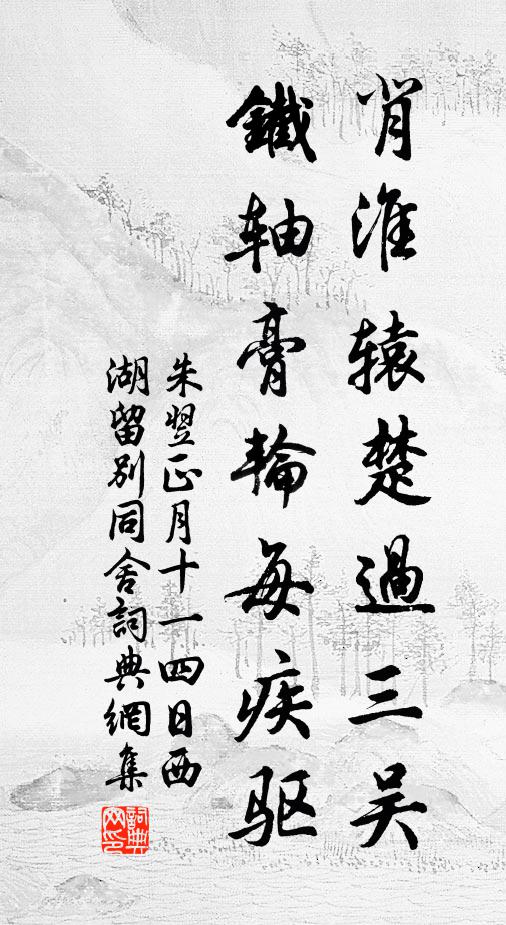 肖淮辕楚過三吴
鐵轴膏輪每疾驱
朱翌正月十一四日西
湖留别同舍詞典網集
詞典网印